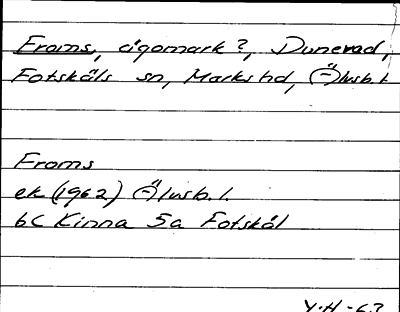 Froms, ägomark?, Dunevad,
Fotskäls sn, Marks hd, Älvsb. l
Froms
ek (1962) Älvsb. l.
6C Kinna 5a Fotskäl
Y.H -63